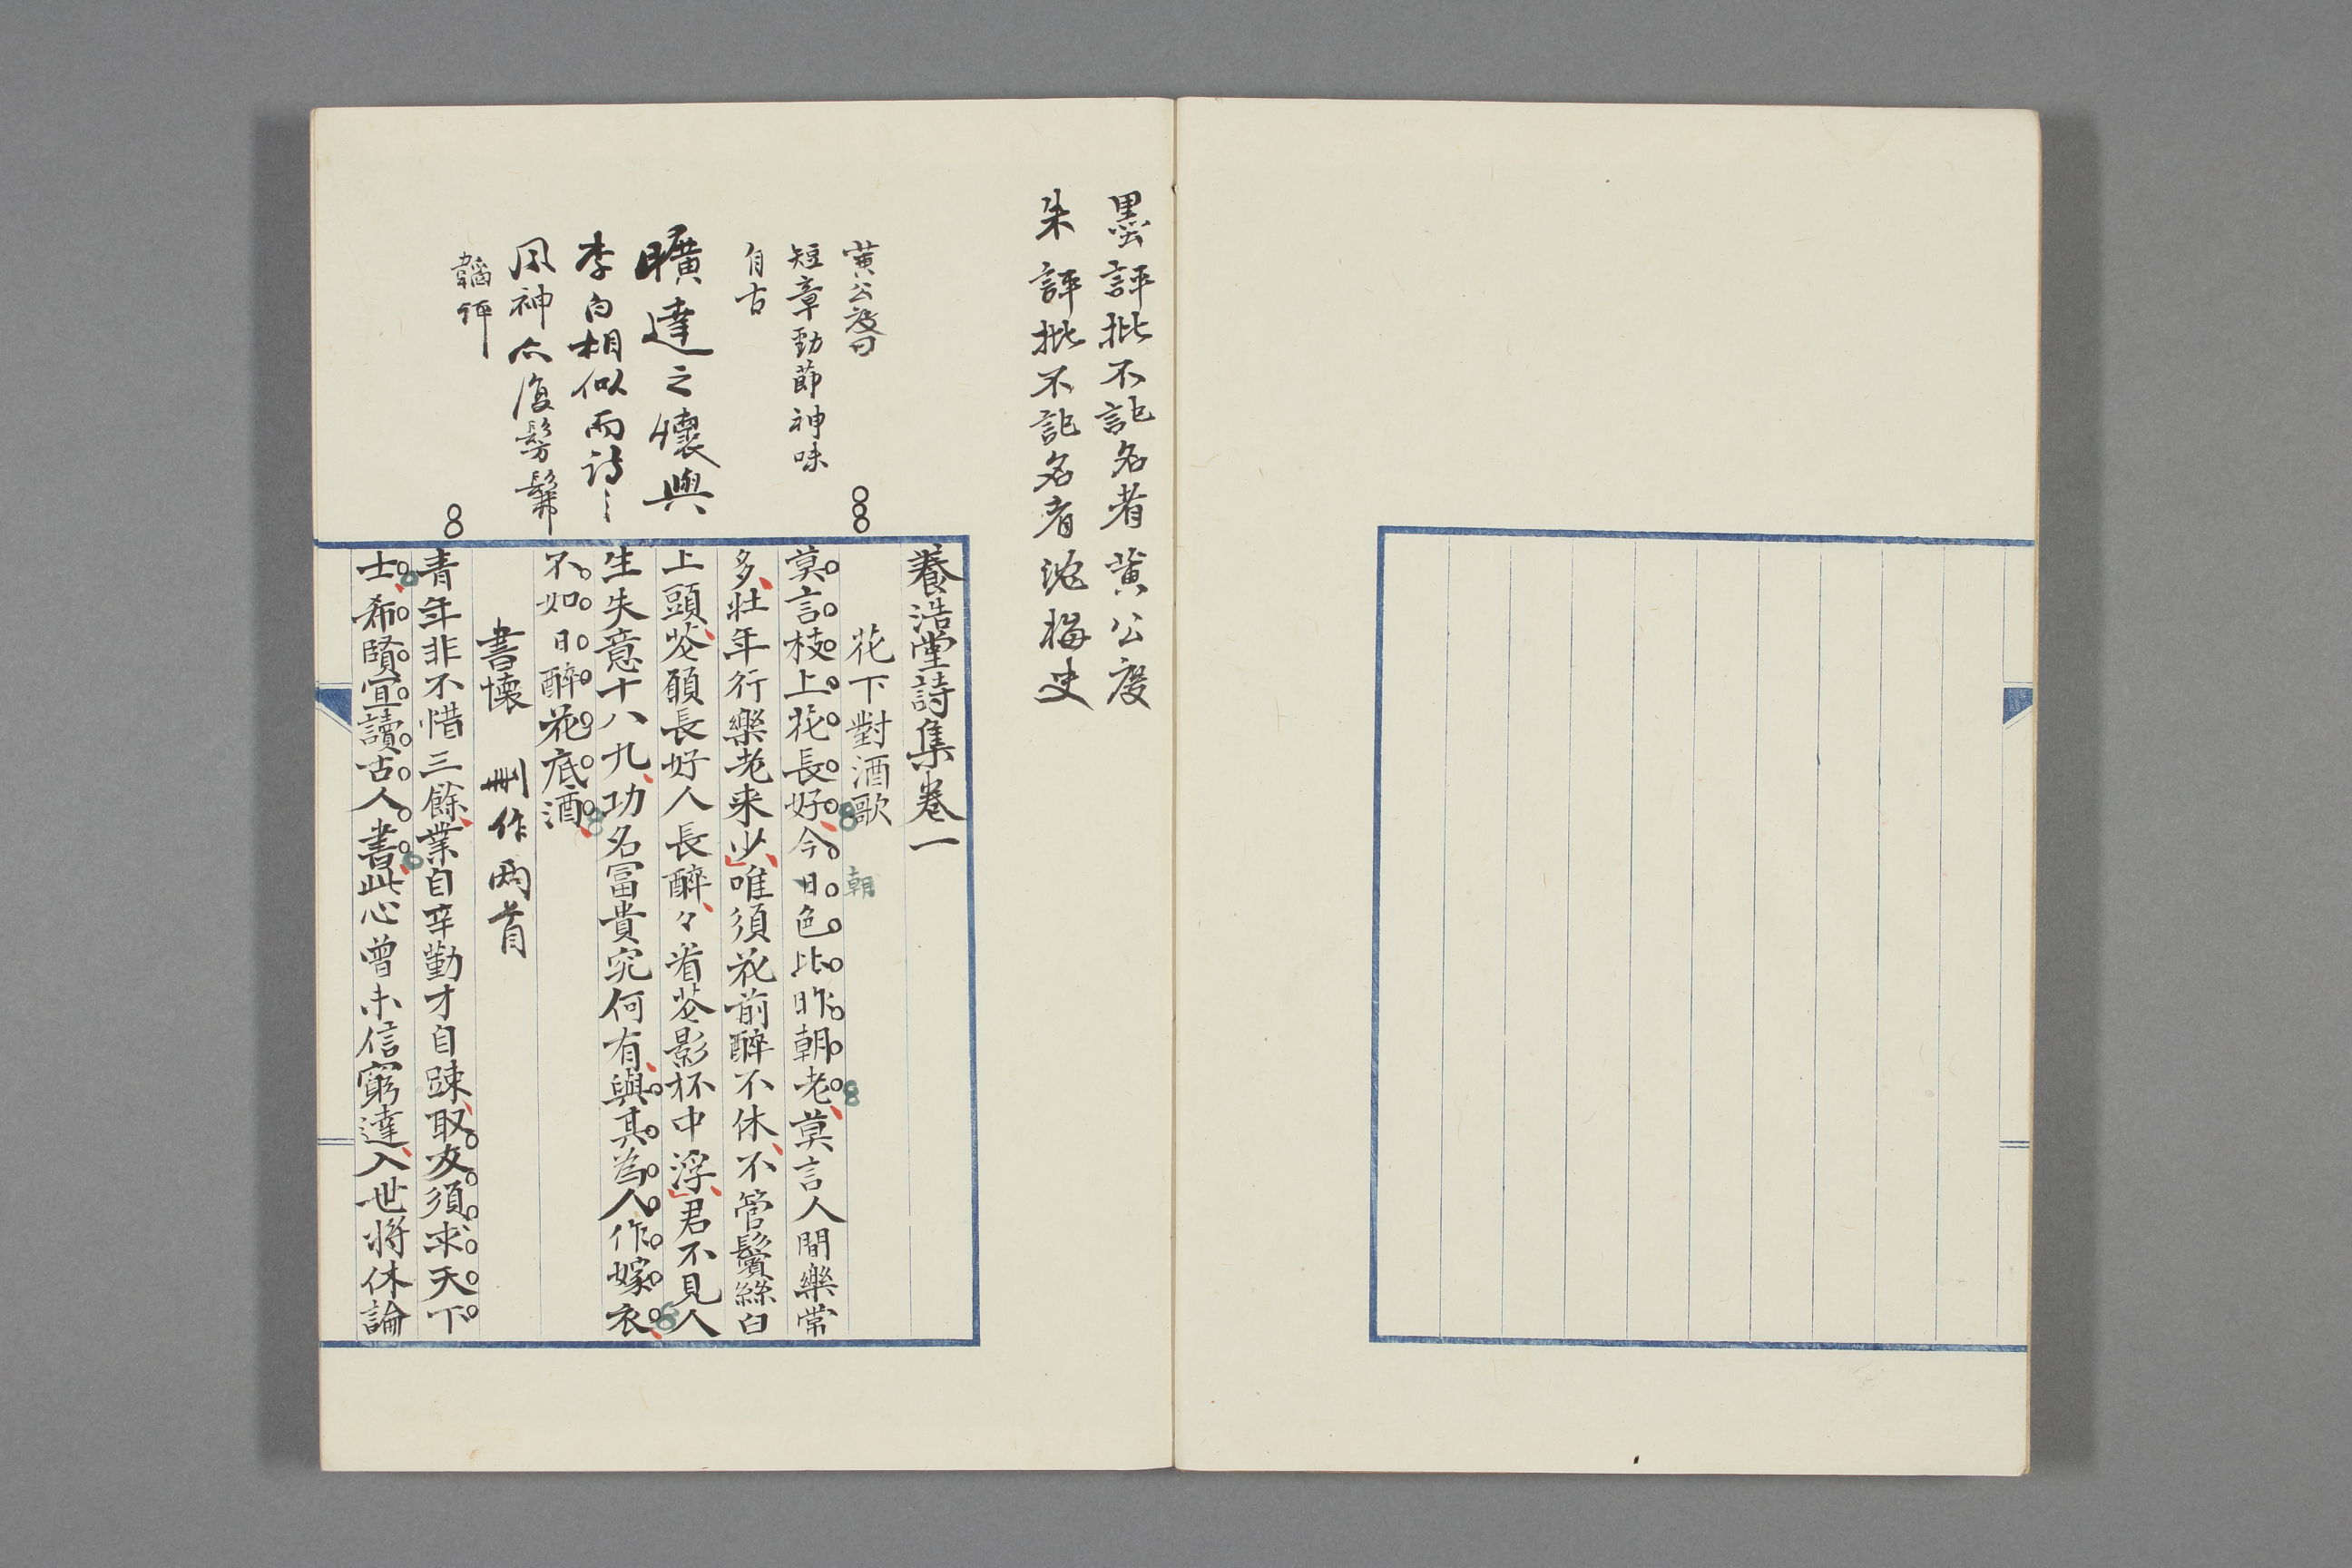 墨評批不記名者黃公度
朱評批不記名者沈梅史
黃公度曰
短章勁節神味
自古
曠達之懷與
李白相似而詩之
風神亦復髣髴
韜評
養浩堂詩集卷一
花下對酒歌
朝
莫言枝上花長好今日色比昨朝老莫言人間樂常
多壯年行樂老来少唯須花前醉不休不管鬢絲白
上頭花願長好人長醉々看花影杯中浮君不見人
生失意十八九功名富貴究何有與其為人作嫁衣
不如日醉花底酒
書懷 刪作两首
青年非不惜三餘業自辛勤才自踈取友須求天下
士希賢宜讀古人書此心曾未信窮達入世将休論